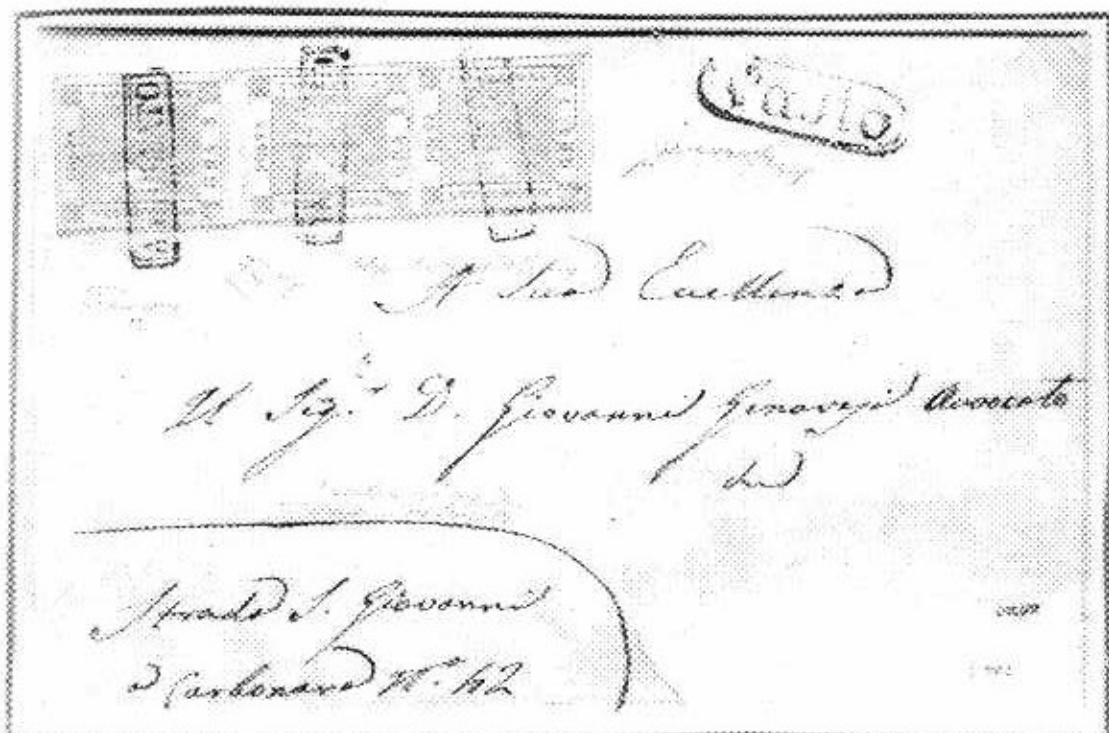 ANNULLATO
Vasto
A Sua Eccellenza
Il Sig.r D. Giovanni Genovesi Avvocato
Strada S. Giovanni
a Carbonara N.° 42